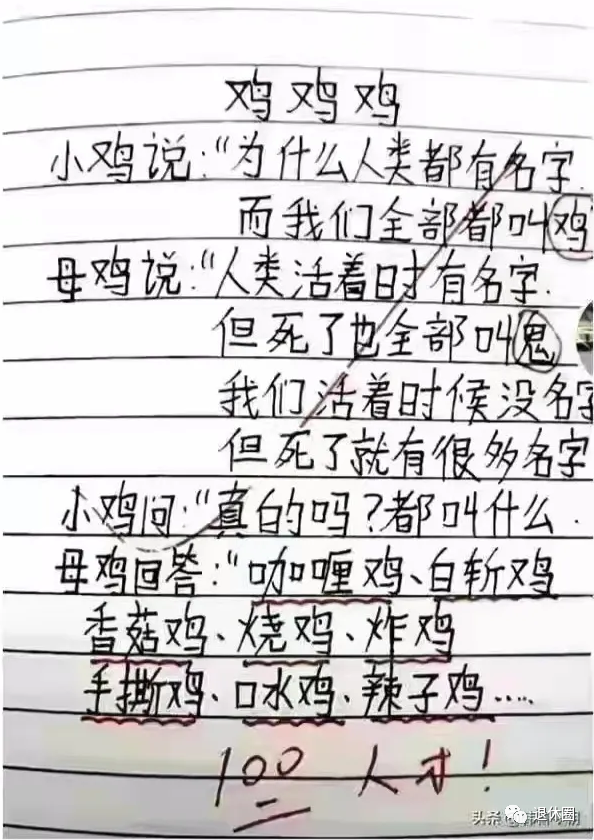 鸡鸡鸡
小鸡说:“为什么人类都有名字.
而我们全部都叫鸡
母鸡说:“人类活着时有名字.
但死了也全部叫鬼
我们活着时候没名字
但死了就有很多名字
小鸡问:“真的吗?都叫什么.
母鸡回答:“咖喱鸡、白斩鸡
香菇鸡、烧鸡、炸鸡
手撕鸡、口水鸡、辣子鸡……
100 人才!
头条
退休圈